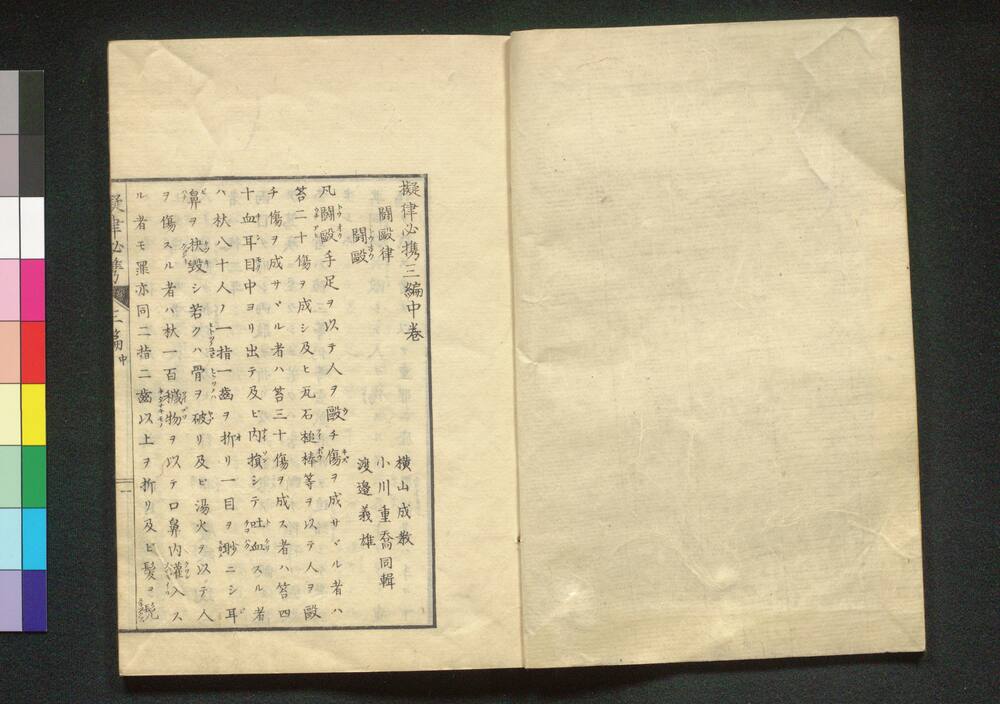 擬律必携三編中卷
横山成教
鬪毆律
小川重喬同輯
鬪毆
渡邉義雄
凡鬪毆手足ヲ以テ人ヲ毆チ傷ヲ成サヾル者ハ
笞二十傷ヲ成シ及ヒ瓦石槌棒等ヲ以テ人ヲ毆
チ傷ヲ成サヾル者ハ笞三十傷ヲ成ス者ハ笞四
十血耳目中ヨリ出テ及ビ内損シテ吐血スル者
ハ杖八十人ノ一指一齒ヲ折リ一目ヲ眇ニシ耳
鼻ヲ抉毀シ若クハ骨ヲ破リ及ヒ湯火ヲ以テ人
ヲ傷スル者ハ杖一百穢物ヲ以テ口鼻内ニ灌入ス
ル者モ罪亦同二指二齒以上ヲ折リ及ヒ髪ヲ髠
擬律必携 三編 中 一